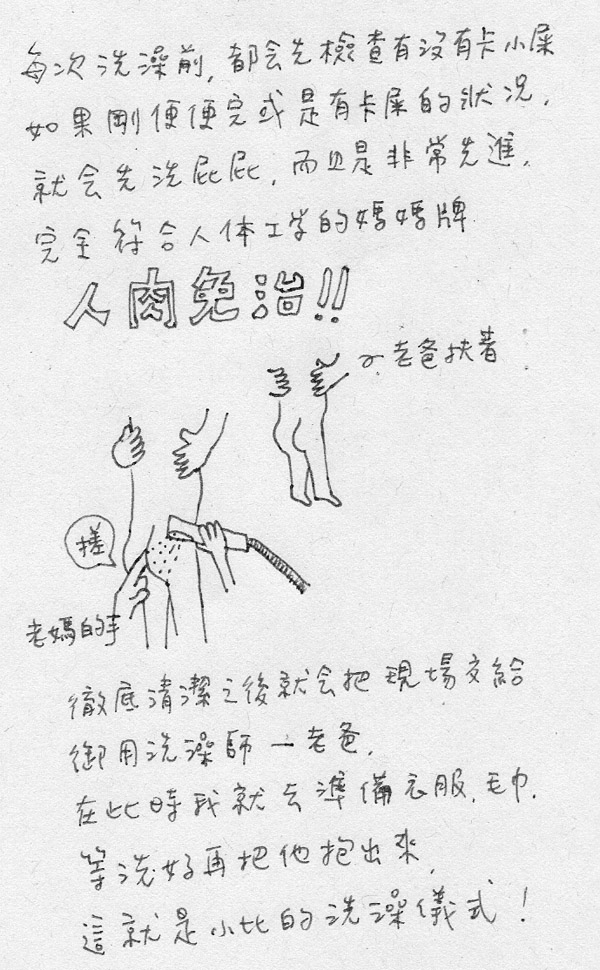 每次洗澡前,都会先檢查有沒有卡小屎
如果剛便便完或是有卡屎的狀況,
就会先洗屁屁,而且是非常先進,
完全符合人体工学的媽媽牌
人肉免治!!
老爸扶著
搓
老媽的手
徹底清潔之後就会把現場交給
御用洗澡師－老爸,
在此時我就去準備衣服、毛巾,
等洗好再把他抱出來,
這就是小比的洗澡儀式!